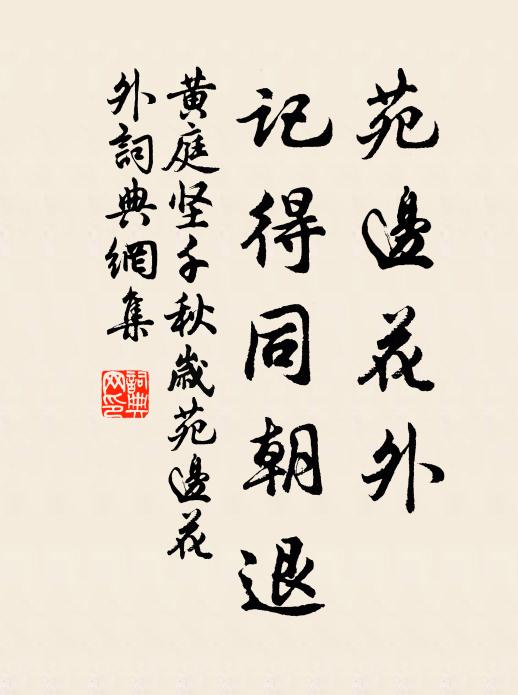 苑邊花外
記得同朝退
黃庭坚千秋歲苑邊花
外詞典網集
詞典
网印